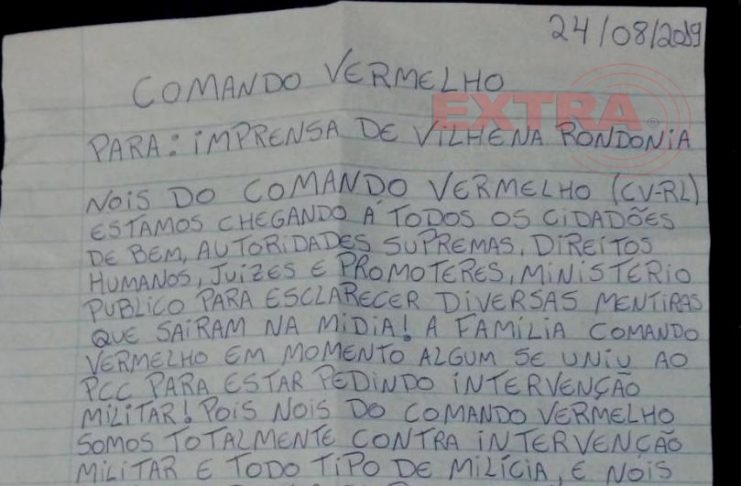 24/08/2019
COMANDO VERMELHO
EXTRA
PARA: IMPRENSA DE VILHENA RONDONIA
NOIS DO COMANDO VERMELHO (CV-RL)
ESTAMOS CHEGANDO Á TODOS OS CIDADÕES
DE BEM, AUTORIDADES SUPREMAS, DIREITOS
HUMANOS, JUIZES E PROMOTERES, MINISTÉRIO
PUBLICO PARA ESCLARECER DIVERSAS MENTIRAS
QUE SAIRAM NA MIDIA! A FAMÍLIA COMANDO
VERMELHO EM MOMENTO ALGUM SE UNIU AO
PCC PARA ESTAR PEDINDO INTERVENÇÃO
MILITAR! POIS NOIS DO COMANDO VERMELHO
SOMOS TOTALMENTE CONTRA INTERVENÇÃO
MILITAR E TODO TIPO DE MILÍCIA, E NOIS